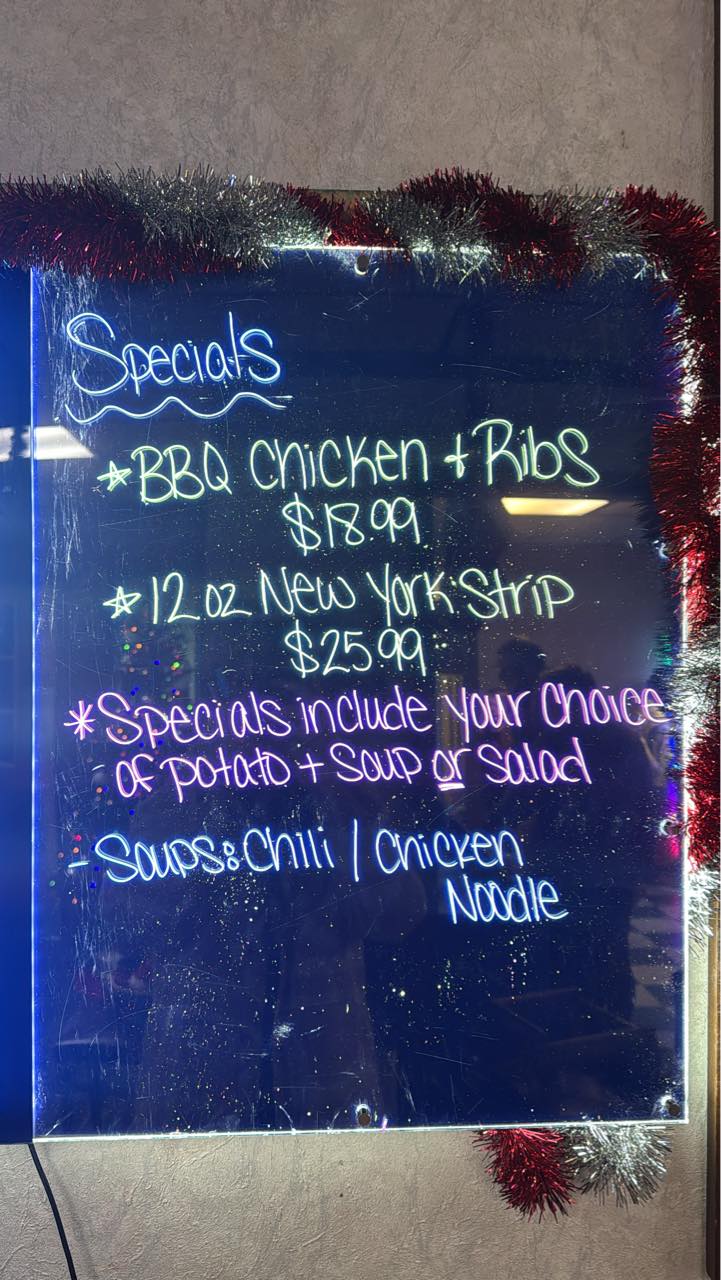 Specials
☆BBQ Chicken + Ribs
$18.99
☆12 oz New York Strip
$25.99
*Specials include your choice
of potato + soup or salad
- Soups: Chili / Chicken
Noodle